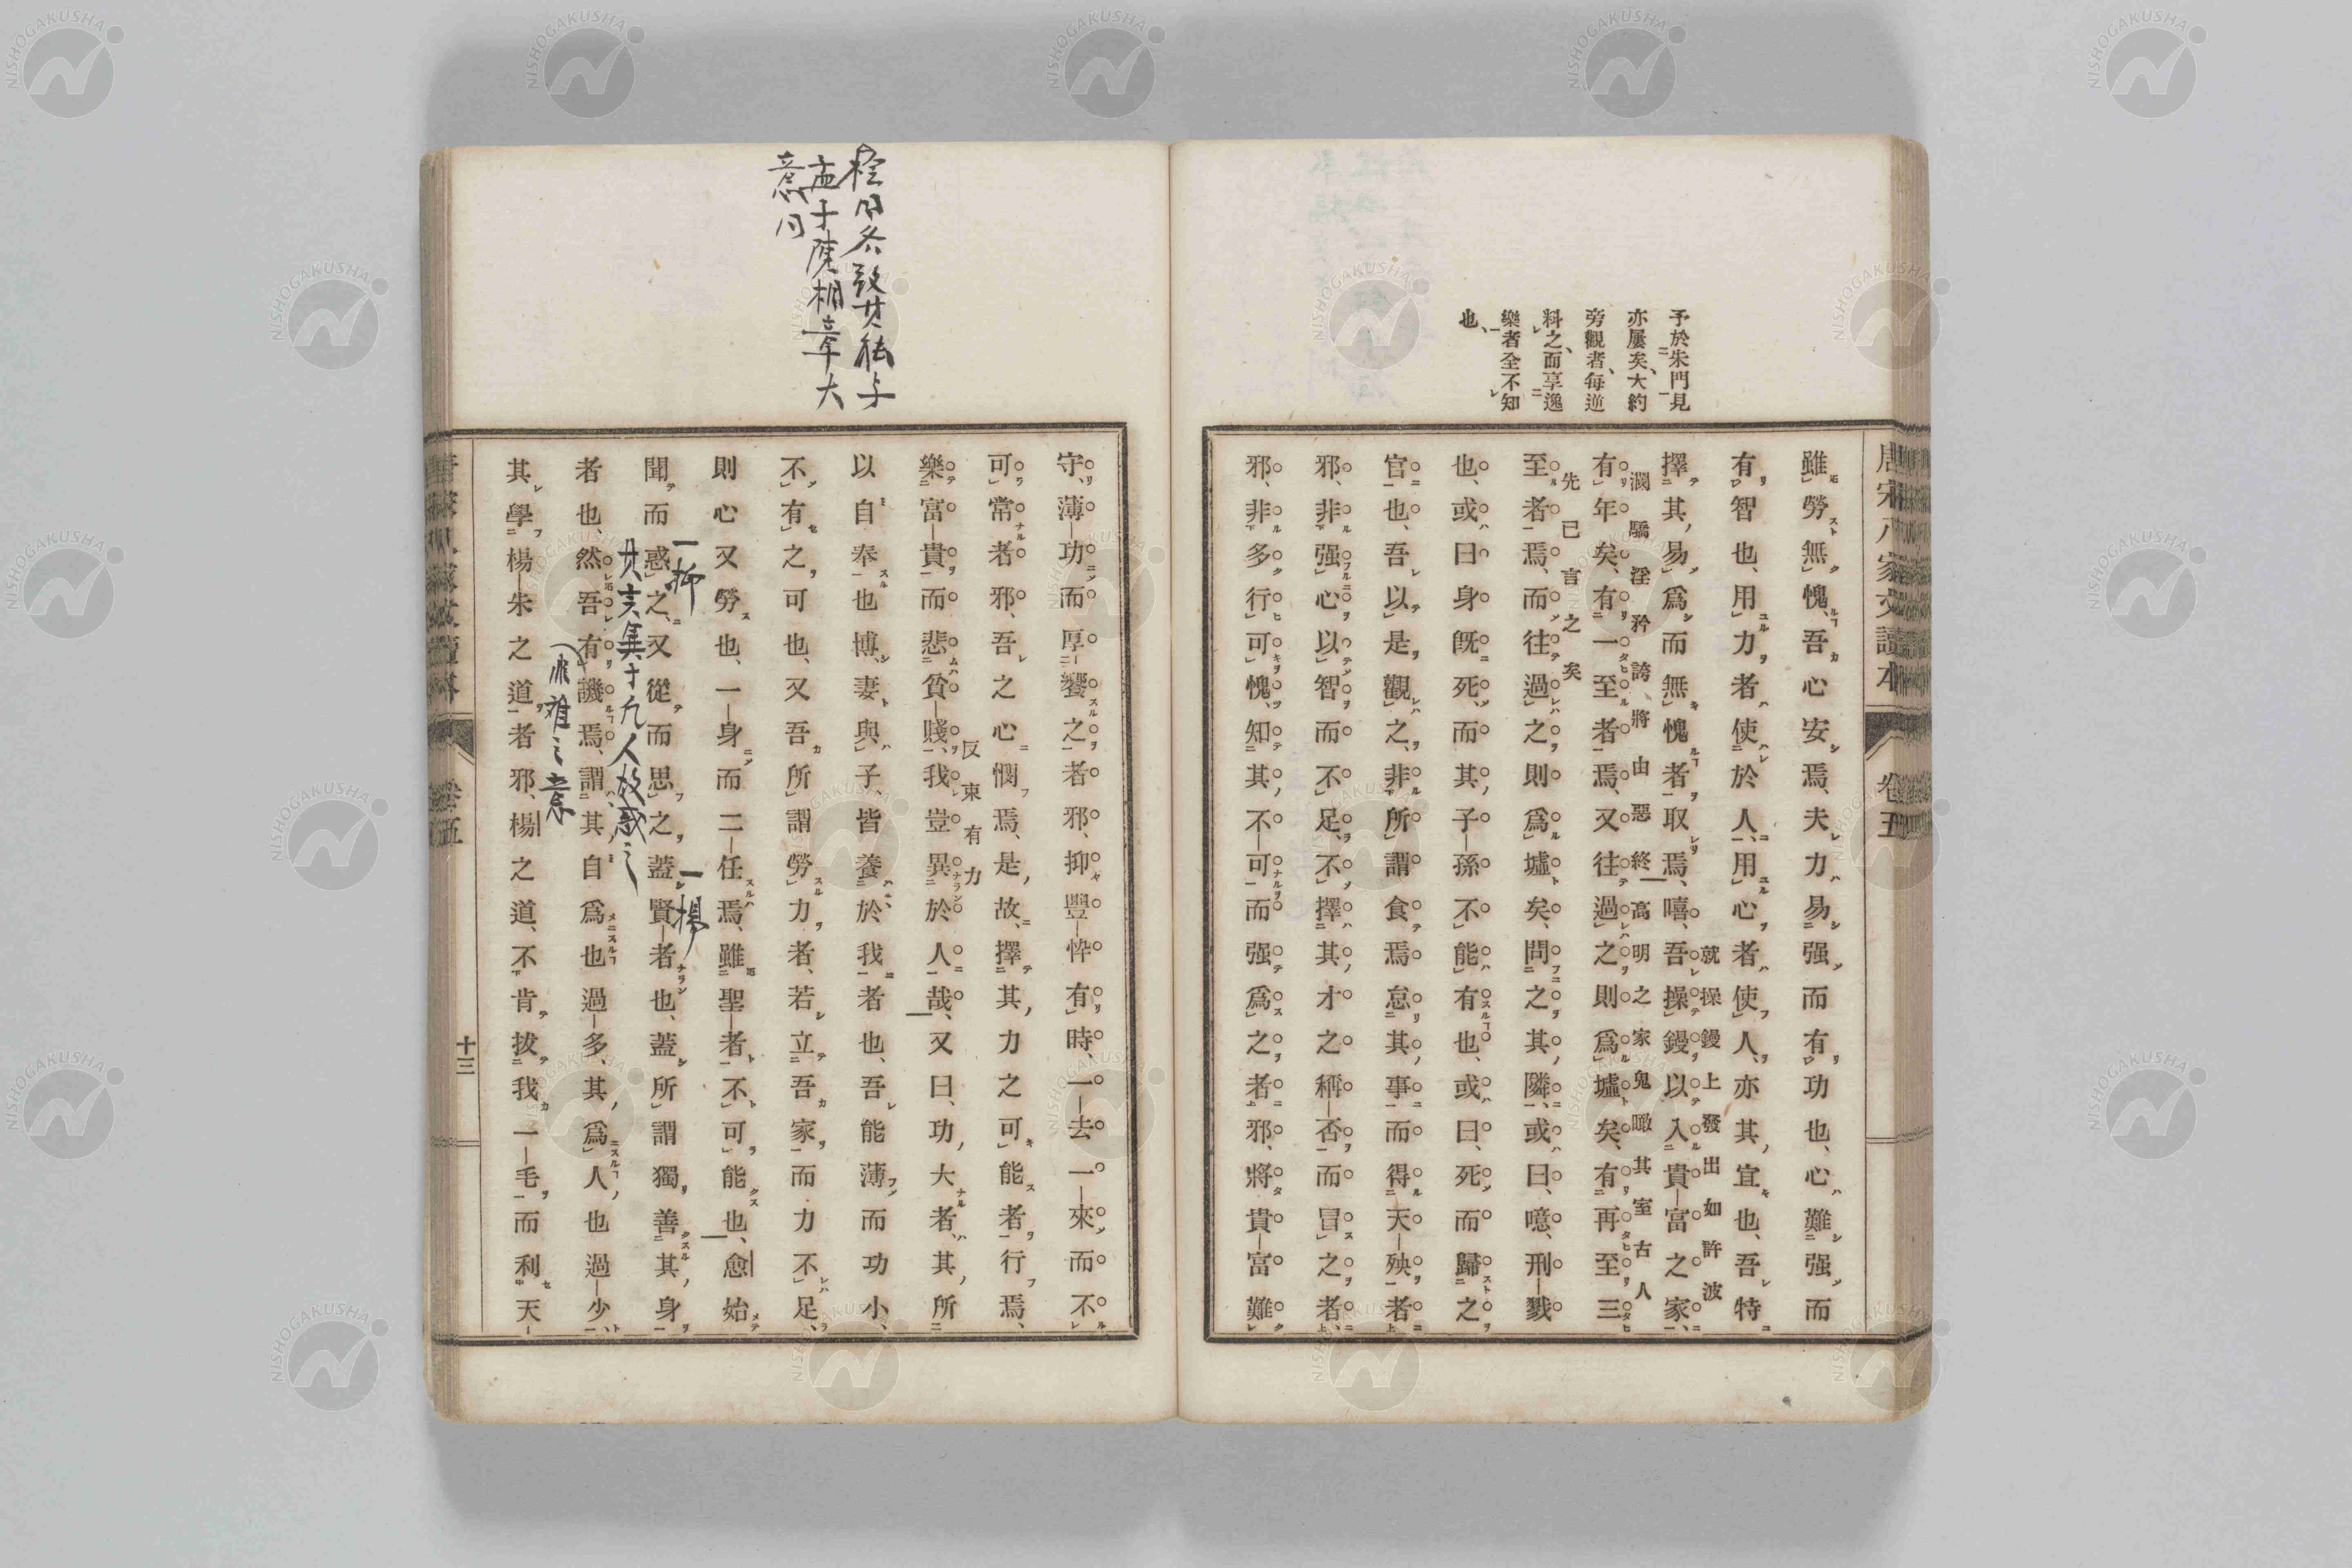 唐宋八家文讀本
卷五
予於朱門見
亦屢矣、大約
旁觀者、每逆
料之、而享逸
樂者全不知
也、
雖勞無愧、吾心安焉、夫力易强而有功也、心難强而
有智也、用力者使於人、用心者使人、亦其宜也、吾特
就操鏝上發出如許波
擇其易爲而無愧者取焉、嘻、吾操鏝以入貴富之家、
瀾驕淫矜誇、將由惡終、高明之家鬼瞰其室古人
有年矣、有一至者焉、又往過之、則爲墟矣、有再至三
先已言之矣
至者焉、而往過之、則爲墟矣、問之其隣、或曰、噫、刑戮
也、或曰身旣死、而其子孫不能有也、或曰、死而歸之
官也、吾以是觀之、非所謂食焉怠其事而得天殃者
邪、非强心以智而不足、不擇其才之稱否而冒之者
邪、非多行可愧、知其不可而强爲之者邪、將貴富難
守、薄功而厚饗之者邪、抑豐悴有時、一去一來而不
可常者邪、吾之心憫焉、是故擇其力之可能者行焉、
反束有力
樂富貴而悲貧賤、我豈異於人哉、又曰、功大者、其所
以自奉也博、妻與子、皆養於我者也、吾能薄而功小、
不有之可也、又吾所謂勞力者、若立吾家而力不足、
則心又勞也、一身而二任焉、雖聖者不可能也、愈始
一抑
一揚
聞而惑之、又從而思之、蓋賢者也、蓋所謂獨善其身
者也、然吾有譏焉、謂其自爲也過多、其爲人也過少、
其學楊朱之道者邪、楊之道、不肯拔我一毛而利天
孟子陳相章大
意同
十三